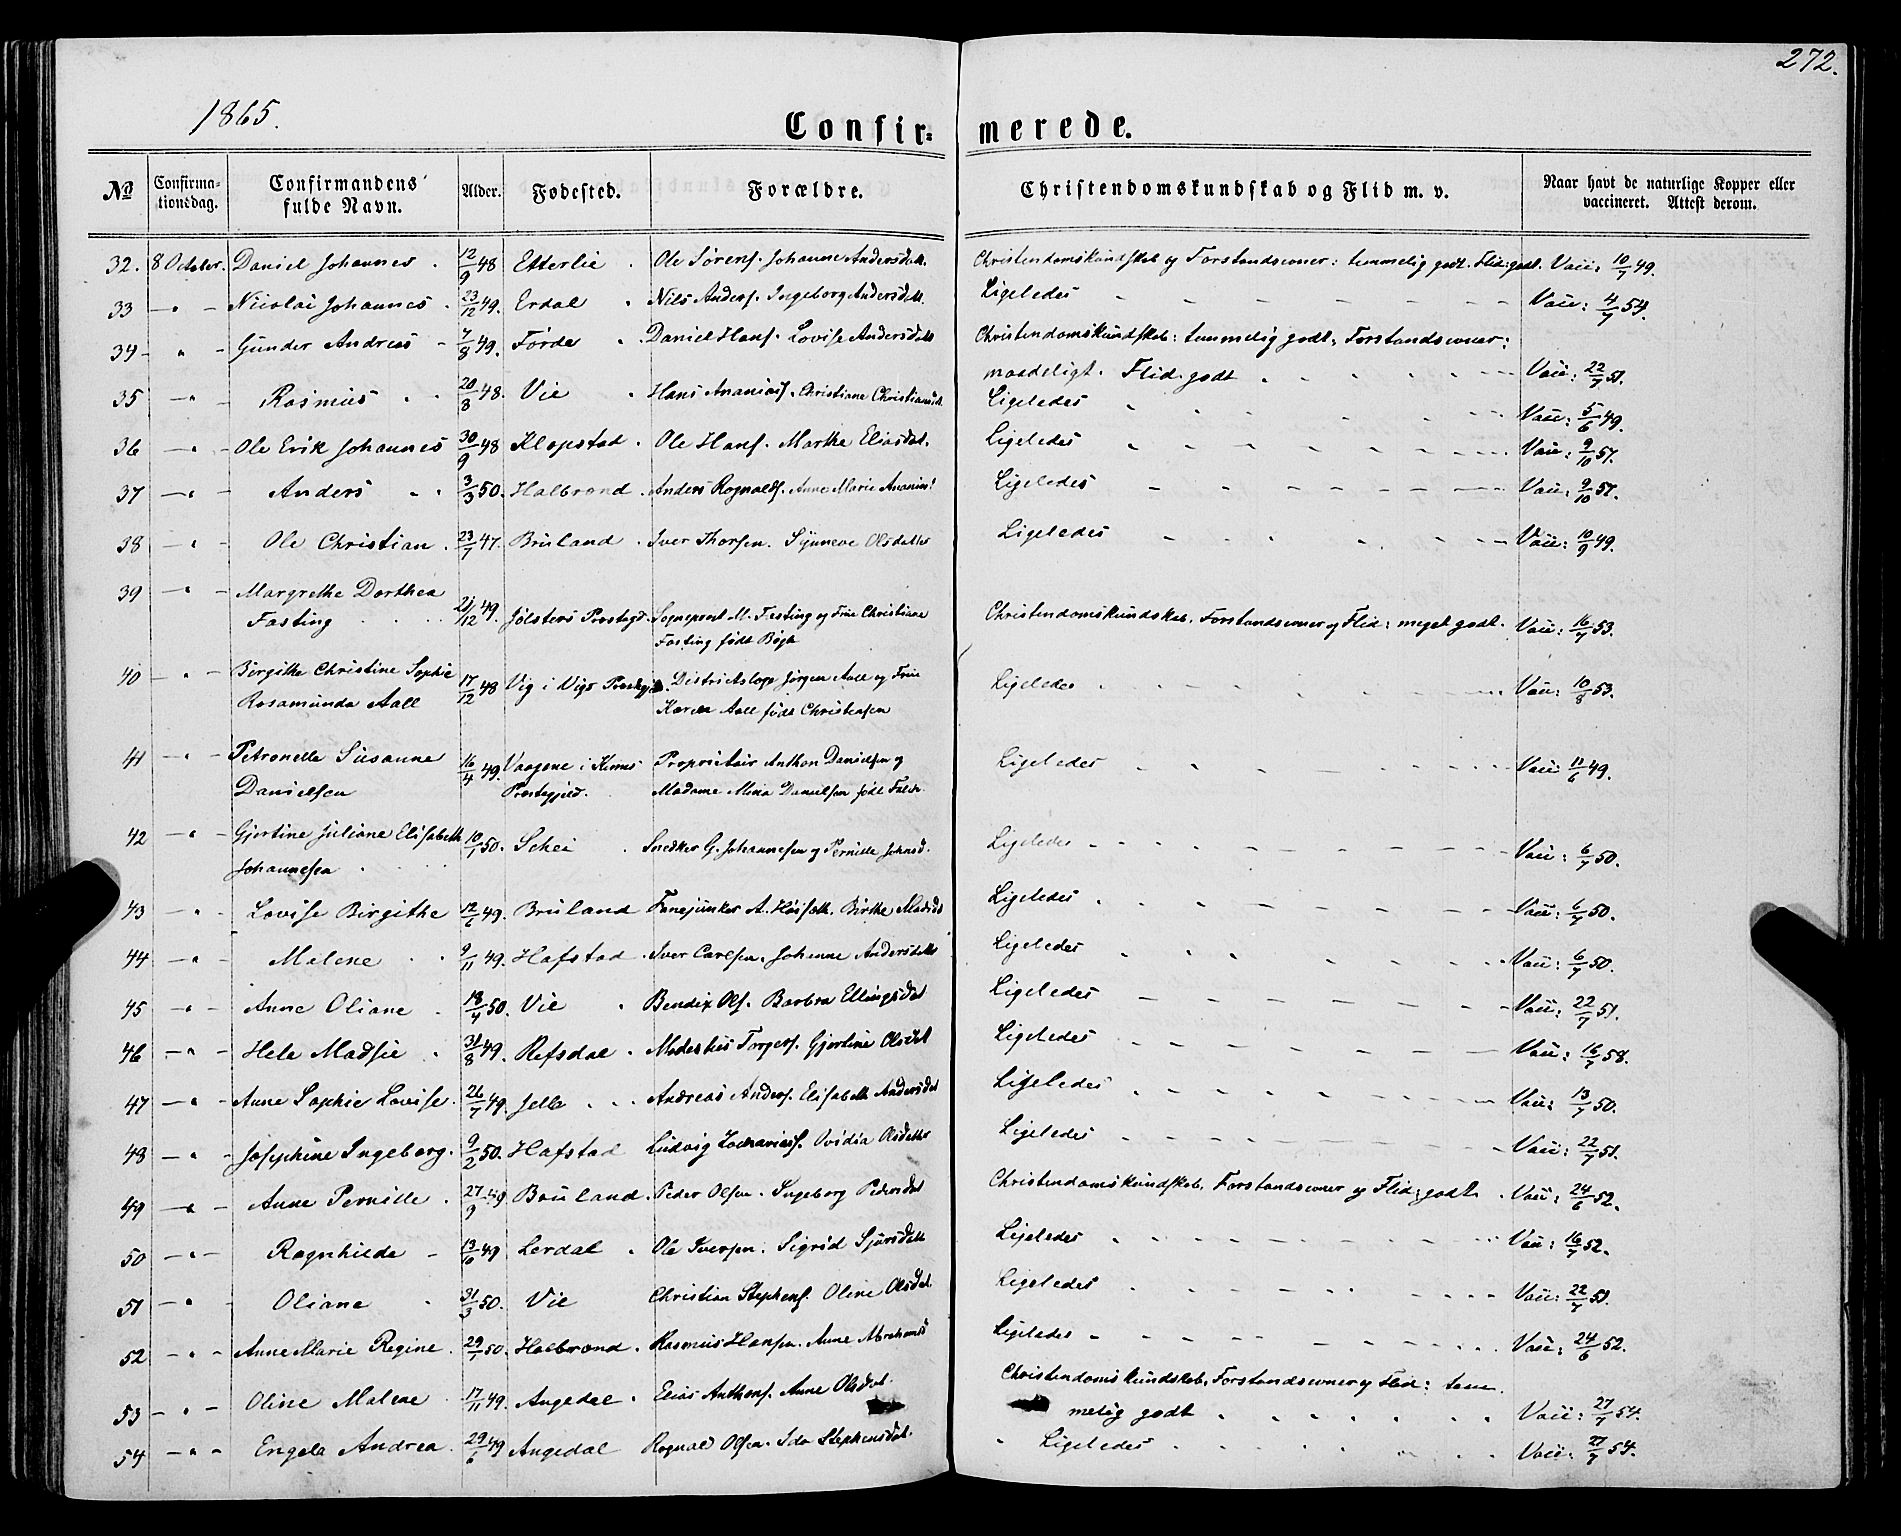 272.
1865.
Confir= merede.
No Confirmationsdag. Confirmandens fulde Navn. Alder. Fødested. Forældre. Christendomskundskab og Flid m. v. Naar havt de naturlige Kopper eller vaccineret. Attest derom.
32. 8 October. Daniel Johannes. 12/9 48 Etterlie. Ole Sørens. Johanne Andersdatt. Christendomskundskab og Forstandsevner: temmelig godt. Flid: godt. Vacc: 10/7 49.
33 — " — Nicolai Johannes. 23/12 49. Erdal. Nils Anders. Ingeborg Andersdatt. Ligeledes Vacc: 4/7 54.
34 — " — Gunder Andreas 7/8 49. Førde. Daniel Hans. Lovise Andersdatt Christendomskundskab: temmelig godt, Forstandsevner:
maadeligt. Flid godt Vacc: 22/7 51.
35 — " — Rasmus 20/8 48. Vie Hans Ananias. Christiane Christiansd. Ligeledes Vacc: 5/6 49.
36 — " — Ole Erik Johannes 30/9 48 Klopstad. Ole Hans. Marthe Eliasdat. Ligeledes Vacc: 9/10 57.
37 — " — Anders 3/3 50. Halbrend. Anders Rognalds. Anne Marie Ananias Ligeledes Vacc: 9/10 51.
38 — " — Ole Christian. 23/7 47. Bruland. Iver Thorsen. Synneve Olsdatter Ligeledes Vacc: 10/9 49.
39 — " — Margrethe Dorthea
Fasting 21/12 49. Jølsters Prestegd. Sogneprest M. Fasting og Frue Christiane Christendomskundskab, Forstandsevner og Flid: meget godt. Vacc: 16/7 53.
Fasting født Bøgh
40 — " — Birgithe Christine Sophie
Rosamunda Aall 17/12 48 Vig i Vigs Prestegjeld. Districtslæge Jørgen Aall og Frue Ligeledes Vacc: 10/8 53.
Karen Aall født Christensen
41 — " — Petronelle Susanne
Danielsen 16/4 49. Vaagene i Kinns Proprietair Anthon Danielsen og Ligeledes Vacc 11/6 49.
Prestegjeld. Madame Mina Danielsen født
42 — " — Gjertine Juliane Elisabeth 10/1 50. Schei Snedker G. Johannesen og Pernille Johnsd. Ligeledes Vacc: 6/7 50.
Johannesen
43 — " — Lovise Birgithe 12/6 49. Bruland Fanejunker A. Birthe Madsd Ligeledes Vacc: 6/7 50.
44 — " — Malene 9/11 49. Hafstad. Iver Carlsen. Johanne Andersdatt Ligeledes Vacc: 6/7 50.
45 — " — Anne Oliane 18/4 50. Vie Bendix Ols. Barbra Ellingsdat Ligeledes Vacc: 22/7 51.
46 — " — Hele Madsie 31/8 49. Refsdal. Modestus Torgers. Gjertine Olsdat Ligeledes Vacc: 16/7 58.
47 — " — Anne Sophie Lovise. 26/7 49. Jelle Andreas Anders. Elisabeth Andersdat Ligeledes Vacc: 13/7 50.
48 — " — Josephine Ingeborg. 9/2 50. Hafstad Ludvig Zachariass. Ovidia Olsdatter Ligeledes Vacc: 22/7 51.
49 — " — Anne Pernille. 27/9 49 Bruland. Peder Olsen. Ingeborg Pedersdat Christendomskundskab, Forstandsevner og Flid: godt. Vacc: 24/6 52.
50 — " — Ragnhilde 13/10 49 Lerdal. Ole Iversen. Sigrid Sjursdatt Ligeledes Vacc: 16/7 52.
51 — " — Oliane 31/3 50. Vie Christian Stephens. Oline Olsdat. Ligeledes Vacc: 22/7 51.
52 — " — Anne Marie Regine. 29/1 50. Halbrend. Rasmus Hansen. Anne Abrahamsd Ligeledes Vacc: 24/6 52.
53 — " — Oline Malene 17/11 49. Angedal. Elias Anthons. Anne Olsdat. Christendomskundskab, Forstandsevner og Flid: tem-
melig godt Vacc: 27/7 54.
54 — " — Engela Andrea. 29/6 49 Angedal Rognald Olsen. Ida Stephensdat. Ligeledes Vacc: 27/7 54.